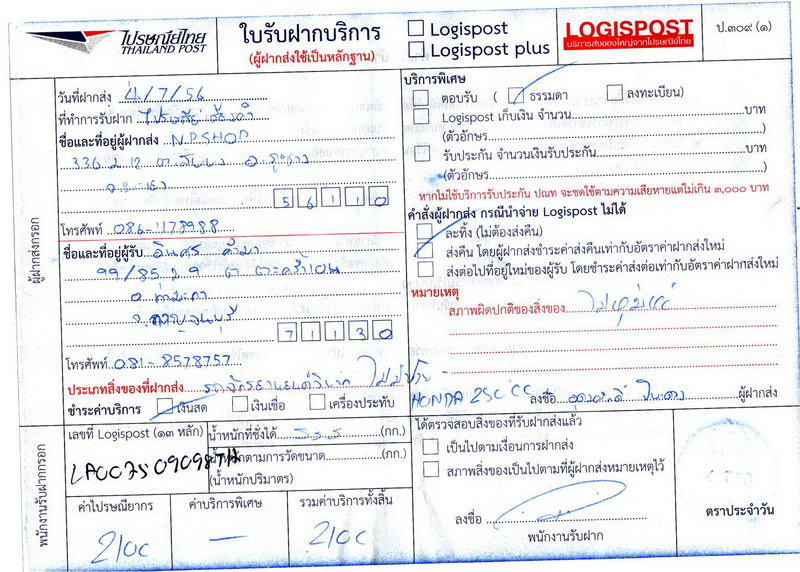 ไปรษณีย์ไทย
THAILAND POST
ใบรับฝากบริการ
(ผู้ฝากส่งใช้เป็นหลักฐาน)
Logispost
Logispost plus
LOGISPOST
บริการส่งของใหญ่จากไปรษณีย์ไทย
ป.๓๐๙ (๑)
ผู้ฝากส่งกรอก
วันที่ฝากส่ง 4/7/56
ที่ทำการรับฝาก
ชื่อและที่อยู่ผู้ฝากส่ง N.P.SHOP
336 ม.12
56110
โทรศัพท์
ชื่อและที่อยู่ผู้รับ
99/85 ม.9
อ. ท่ามะกา
จ. กาญจนบุรี
71130
โทรศัพท์ 081-8578757
ประเภทสิ่งของที่ฝากส่ง
ชำระค่าบริการ เงินสด เงินเชื่อ เครื่องประทับ
บริการพิเศษ
ตอบรับ ( ธรรมดา ลงทะเบียน)
Logispost เก็บเงิน จำนวน บาท
(ตัวอักษร )
รับประกัน จำนวนเงินรับประกัน บาท
(ตัวอักษร )
หากไม่ใช้บริการรับประกัน ปณท จะชดใช้ตามความเสียหายแต่ไม่เกิน ๓,๐๐๐ บาท
คำสั่งผู้ฝากส่ง กรณีนำจ่าย Logispost ไม่ได้
ละทิ้ง (ไม่ต้องส่งคืน)
ส่งคืน โดยผู้ฝากส่งชำระค่าส่งคืนเท่ากับอัตราค่าฝากส่งใหม่
ส่งต่อไปที่อยู่ใหม่ของผู้รับ โดยชำระค่าส่งต่อเท่ากับอัตราค่าฝากส่งใหม่
หมายเหตุ
สภาพผิดปกติของสิ่งของ
HONDA 250 CC
ลงชื่อ ผู้ฝากส่ง
พนักงานรับฝากกรอก
เลขที่ Logispost (๑๓ หลัก)
น้ำหนักที่ชั่งได้ (กก.)
น้ำหนักตามการวัดขนาด (กก.)
(น้ำหนักปริมาตร)
ค่าไปรษณียากร
2100
ค่าบริการพิเศษ
—
รวมค่าบริการทั้งสิ้น
2100
ได้ตรวจสอบสิ่งของที่รับฝากส่งแล้ว
เป็นไปตามเงื่อนการฝากส่ง
สภาพสิ่งของเป็นไปตามที่ผู้ฝากส่งหมายเหตุไว้
ลงชื่อ
พนักงานรับฝาก
ตราประจำวัน